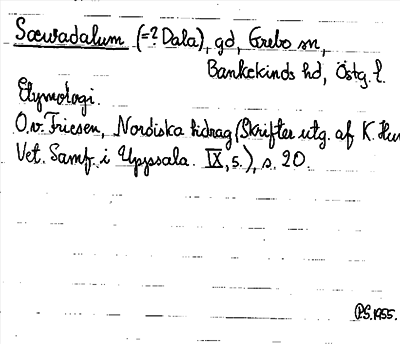 Sæwadalum (=? Dala), gd, Grebo sn,
Bankekinds hd, Östg. l.
Etymologi.
O. v. Friesen, Nordiska bidrag (Skrifter utg. af K. Hum.
Vet. Samf. i Uppsala. IX,5.), s. 20.
P.S. 1955.